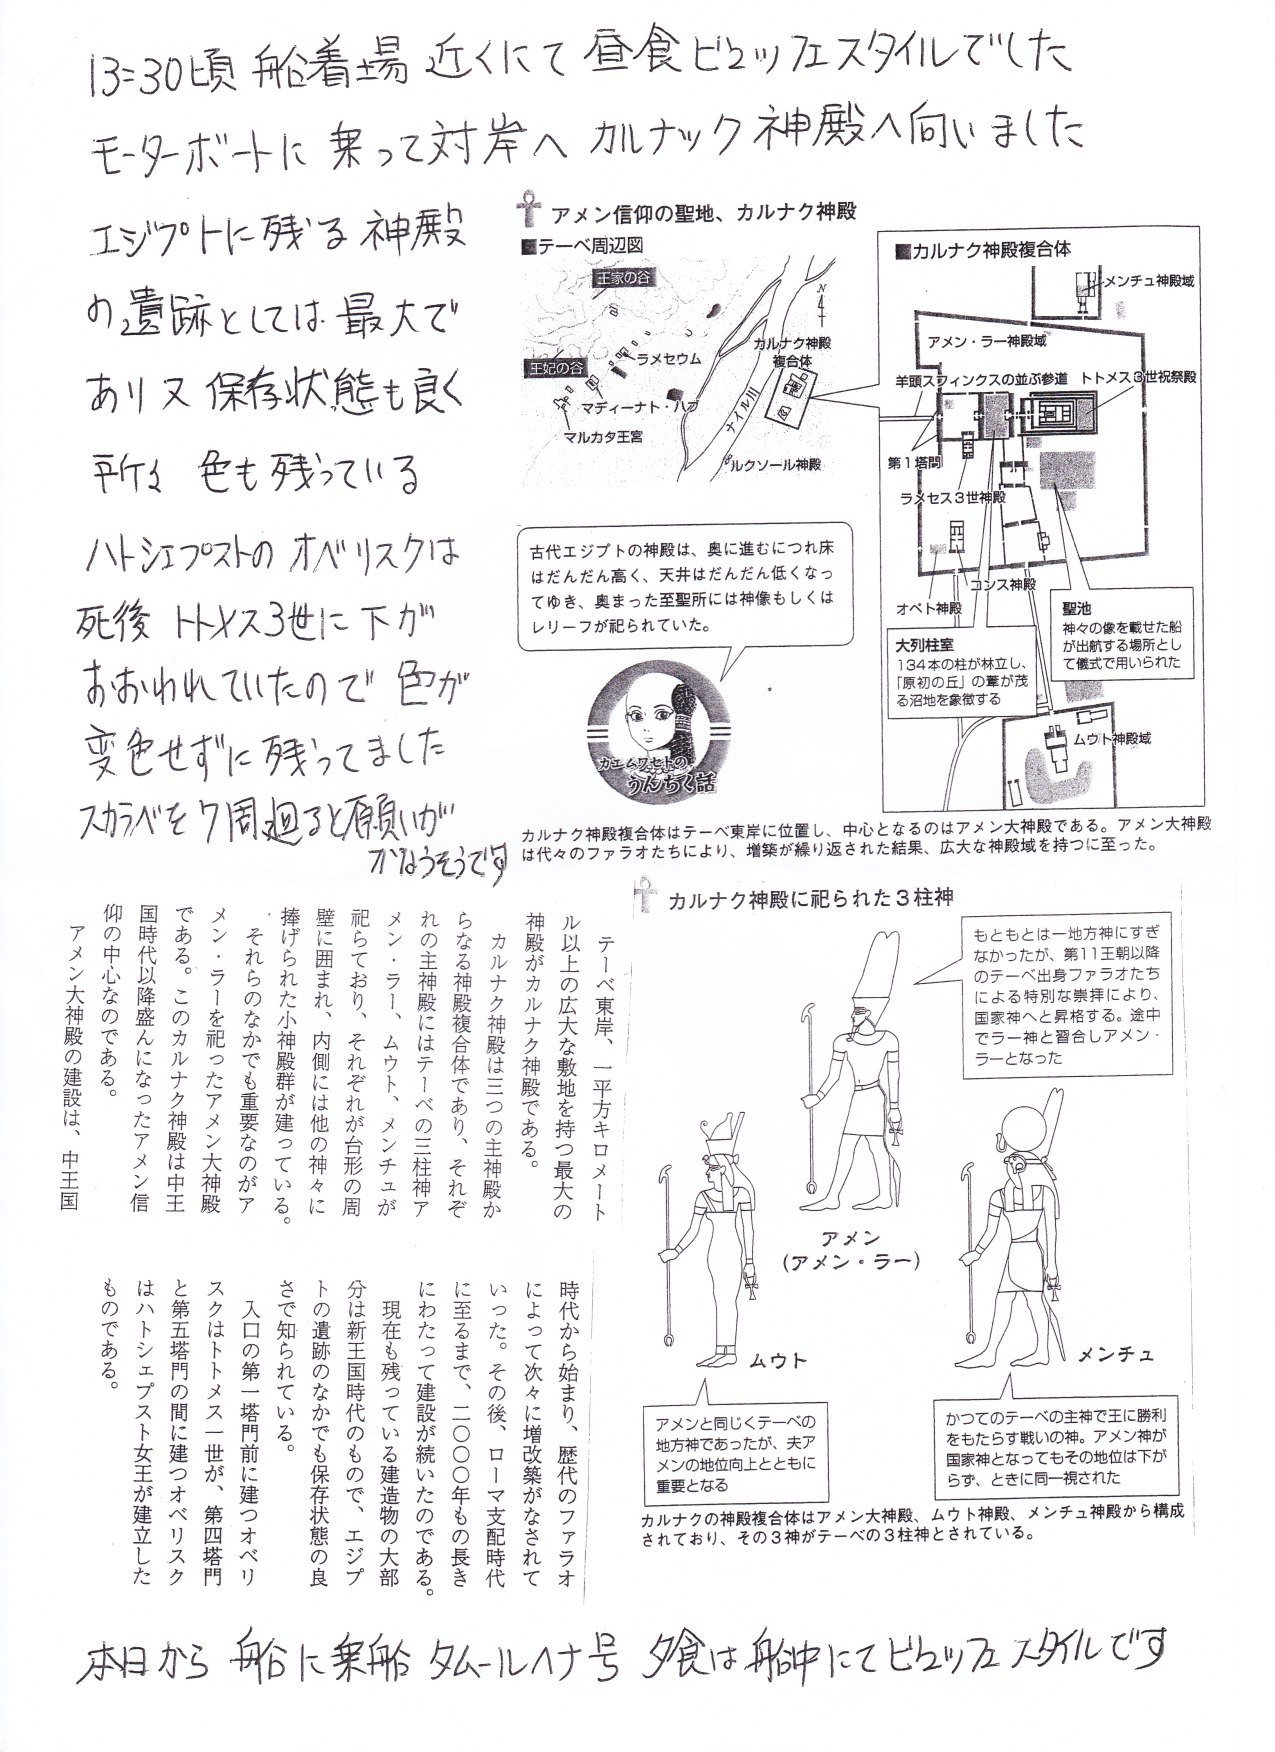 13:30頃 船着場 近くにて 昼食ビュッフェスタイルでした
モーターボートに 乗って対岸へ カルナック神殿へ向いました
エジプトに残る 神殿
の遺跡としては 最大で
あり又 保存状態も良く
所々 色も残っている
ハトシェプストの オベリスクは
死後 トトメス3世に 下が
おおわれていたので 色が
変色せずに 残ってました
スカラベを7周廻ると願いが
かなうそうです
アメン信仰の聖地、カルナク神殿
■テーベ周辺図
王家の谷
王妃の谷
ラメセウム
マディーナト・ハブ
マルカタ王宮
カルナク神殿
複合体
ナイル川
ルクソール神殿
N
■カルナク神殿複合体
メンチュ神殿域
アメン・ラー神殿域
羊頭スフィンクスの並ぶ参道
トトメス3世祝祭殿
第1塔門
ラメセス3世神殿
コンス神殿
オペト神殿
大列柱室
134本の柱が林立し、
「原初の丘」の葦が茂
る沼地を象徴する
聖池
神々の像を載せた船
が出航する場所とし
て儀式で用いられた
ムウト神殿域
古代エジプトの神殿は、奥に進むにつれ床
はだんだん高く、天井はだんだん低くなっ
てゆき、奥まった至聖所には神像もしくは
レリーフが祀られていた。
カエムワセトの
うんちく話
カルナク神殿複合体はテーベ東岸に位置し、中心となるのはアメン大神殿である。アメン大神殿
は代々のファラオたちにより、増築が繰り返された結果、広大な神殿域を持つに至った。
テーベ東岸、一平方キロメート
ル以上の広大な敷地を持つ最大の
神殿がカルナク神殿である。
カルナク神殿は三つの主神殿か
らなる神殿複合体であり、それぞ
れの主神殿にはテーベの三柱神ア
メン・ラー、ムウト、メンチュが
祀らており、それぞれが台形の周
壁に囲まれ、内側には他の神々に
捧げられた小神殿群が建っている。
それらのなかでも重要なのがア
メン・ラーを祀ったアメン大神殿
である。このカルナク神殿は中王
国時代以降盛んになったアメン信
仰の中心なのである。
アメン大神殿の建設は、中王国
時代から始まり、歴代のファラオ
によって次々に増改築がなされて
いった。その後、ローマ支配時代
に至るまで、二〇〇〇年もの長き
にわたって建設が続いたのである。
現在も残っている建造物の大部
分は新王国時代のもので、エジプ
トの遺跡のなかでも保存状態の良
さで知られている。
入口の第一塔門前に建つオベリ
スクはトトメス一世が、第四塔門
と第五塔門の間に建つオベリスク
はハトシェプスト女王が建立した
ものである。
カルナク神殿に祀られた3柱神
もともとは一地方神にすぎ
なかったが、第11王朝以降
のテーベ出身ファラオたち
による特別な崇拝により、
国家神へと昇格する。途中
でラー神と習合しアメン・
ラーとなった
アメン
(アメン・ラー)
ムウト
メンチュ
アメンと同じくテーベの
地方神であったが、夫ア
メンの地位向上とともに
重要となる
かつてのテーベの主神で王に勝利
をもたらす戦いの神。アメン神が
国家神となってもその地位は下が
らず、ときに同一視された
カルナクの神殿複合体はアメン大神殿、ムウト神殿、メンチュ神殿から構成
されており、その3神がテーベの3柱神とされている。
本日から 船に乗船 タムールヘナ号 夕食は 船中にて ビュッフェ スタイルです